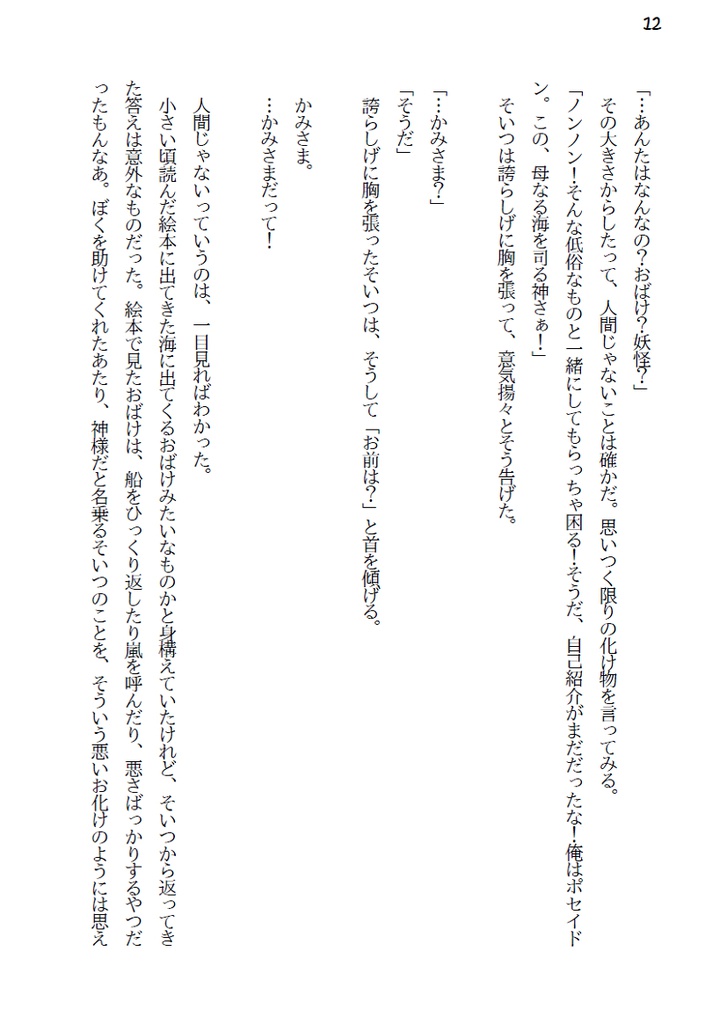 12
「…あんたはなんなの？おばけ？妖怪？」
その大きさからしたって、人間じゃないことは確かだ。思いつく限りの化け物を言ってみる。
「ノンノン！そんな低俗なものと一緒にしてもらっちゃ困る！そうだ、自己紹介がまだだったな！俺はポセイド
ン。この、母なる海を司る神さぁ！」
そいつは誇らしげに胸を張って、意気揚々とそう告げた。
「…かみさま？」
「そうだ」
誇らしげに胸を張ったそいつは、そうして「お前は？」と首を傾げる。
かみさま。
…かみさまだって！
人間じゃないっていうのは、一目見ればわかった。
小さい頃読んだ絵本に出てきた海に出てくるおばけみたいなものかと身構えていたけれど、そいつから返ってき
た答えは意外なものだった。絵本で見たおばけは、船をひっくり返したり嵐を呼んだり、悪さばっかりするやつだ
ったもんなあ。ぼくを助けてくれたあたり、神様だと名乗るそいつのことを、そういう悪いお化けのようには思え